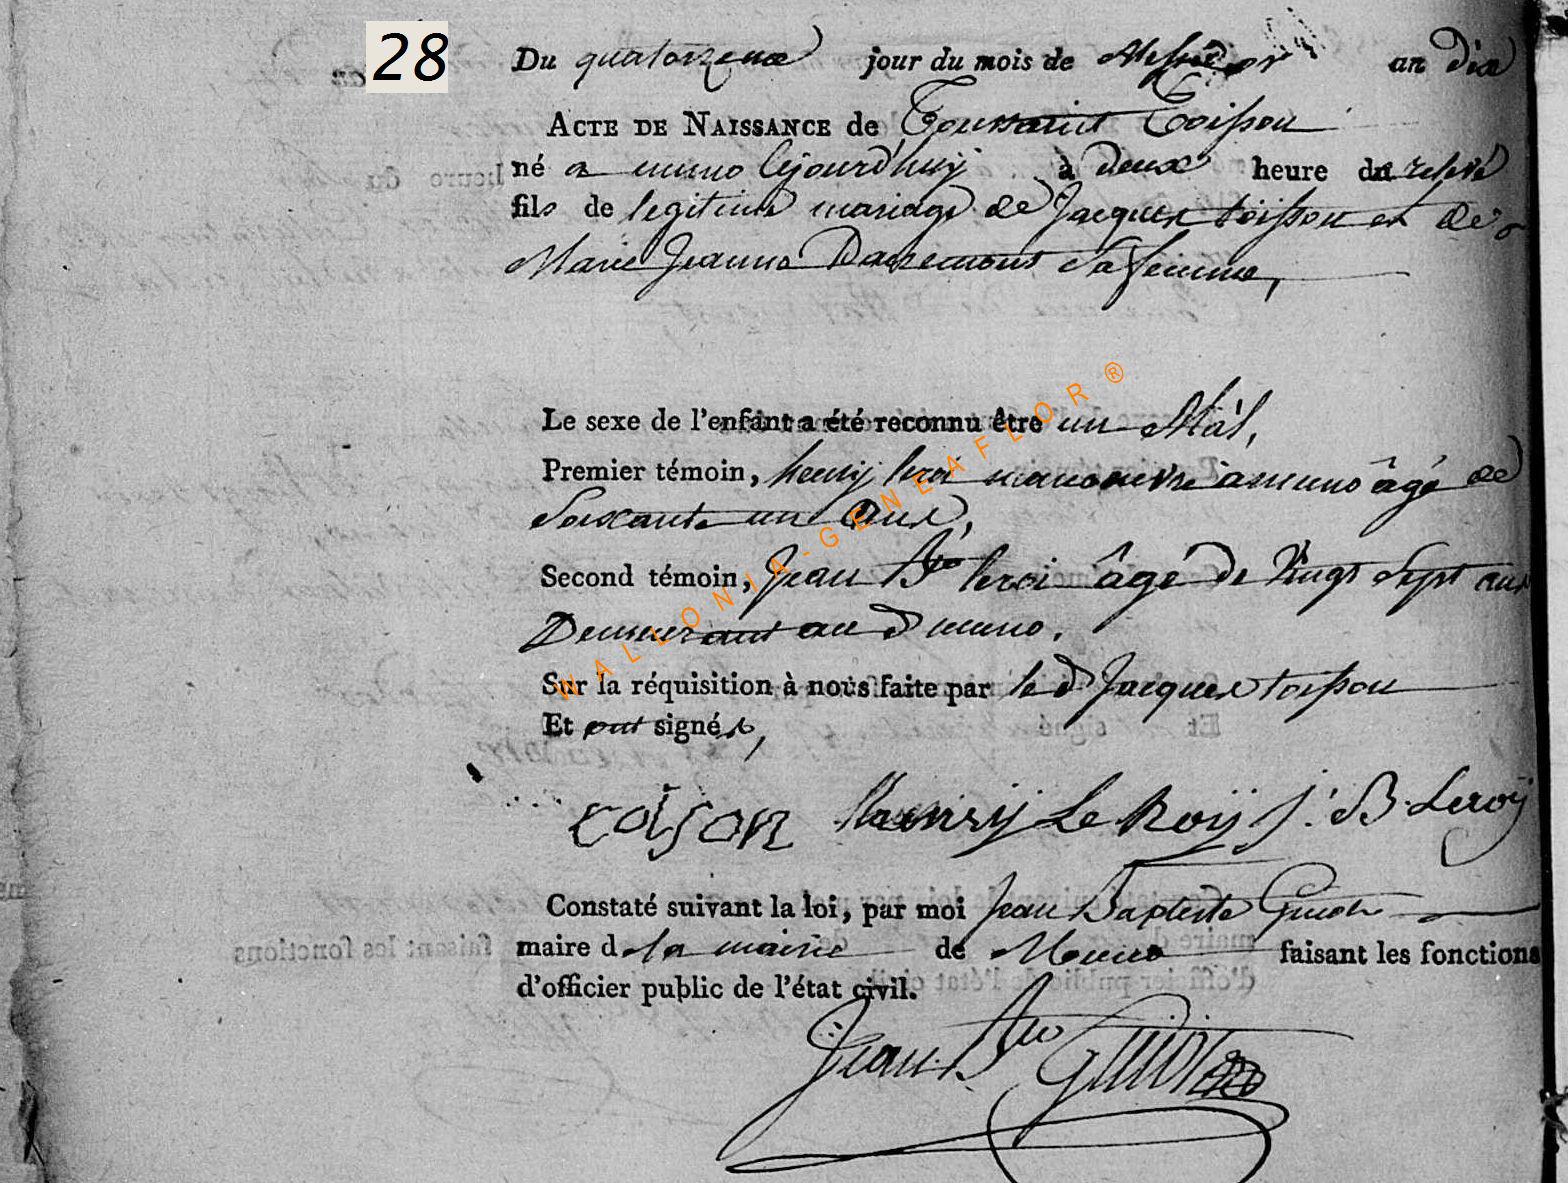 28
Du quatorzeme jour du mois de Messidor an dix
ACTE DE NAISSANCE de Toussaint Toisson
né a muno Cejourd'huy à deux heure du relevé
fils de legitime mariage de Jacques toisson et de
Marie Jeanne Dazremont sa femme,
Le sexe de l'enfant a été reconnu être un Mâl,
Premier témoin, henry leroi manouvre a muno âgé de
Soixante un ans,
Second témoin, Jean Bte leroi âgé de Vingt Sept ans
Demeurant au d muno.
Sur la réquisition à nous faite par le d Jacques toisson
Et ont signés,
toison hanrij Le Roÿ J. B. Leroÿ
Constaté suivant la loi, par moi Jean Baptiste Guiot
maire de la mairie de Muno faisant les fonctions
d'officier public de l'état civil.
Jean Bte Guiot
WALLONIA-GENEAFLOR®